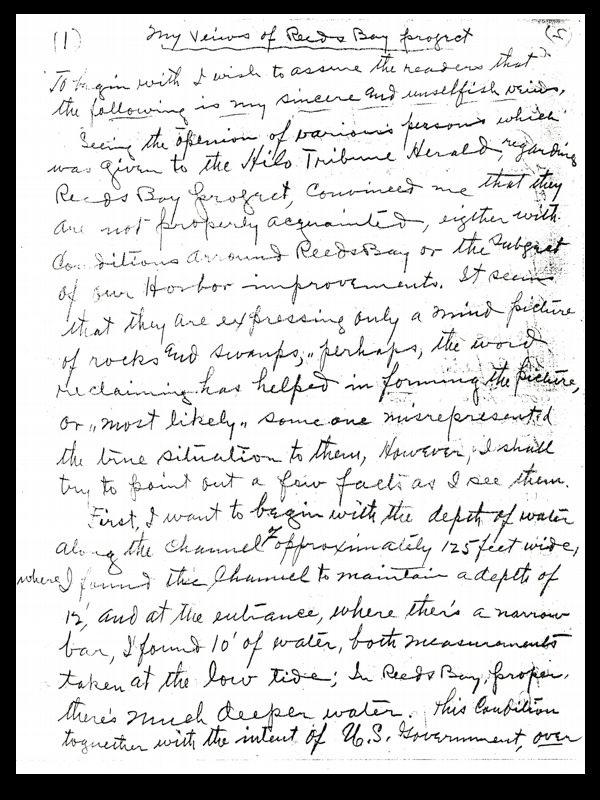 (1) My Views of Reeds Bay project (5)
To begin with I wish to assure the readers that
the following is my sincere and unselfish veiws.
Seeing the openion of varionis persons which
was given to the Hilo Tribune Herald, regarding
Reeds Bay projrct, convinced me that they
are not properly acquainted, eigther with
Conditions arround Reeds Bay or the Subgect
of our Horbor improvements. It seem
that they are expressing only a mind picture
of rocks and swamps, "perhaps, the word
reclaiming has helped in forming the picture,
or "most likely" some one misrepresented
the true situation to them, However, I shall
try to point out a few facts as I see them.
First, I want to begin with the depth of water
along the Channel of approximately 125 feet wide,
where I found the Channel to maintain a depth of
12', and at the entrance, where ther's a narrow
bar, I found 10' of water, both measurements
taken at the low tide; In Reeds Bay, proper,
there's much deeper water. This Condition
toguether with the intent of U.S. Government, over